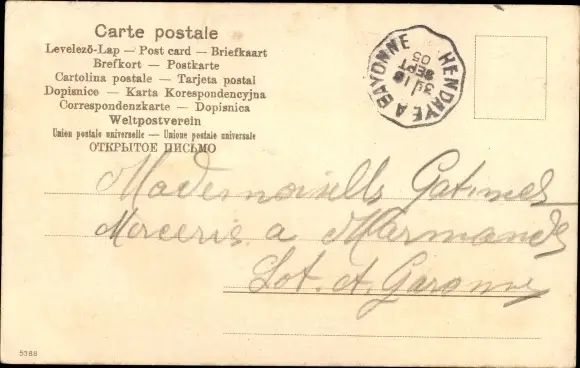 Carte postale
Levelezö-Lap — Post card — Briefkaart
Brefkort — Postkarte
Cartolina postale — Tarjeta postal
Dopisnice — Karta Korespondencyjna
Correspondenzkarte — Dopisnica
Weltpostverein
Union postale universelle — Unione postale universale
ОТКРЫТОЕ ПИСЬМО
HENDAYE A BAYONNE
SEPT
05
Mademoiselle
Mercerie a Marmande
Lot. et. Garonne
5388